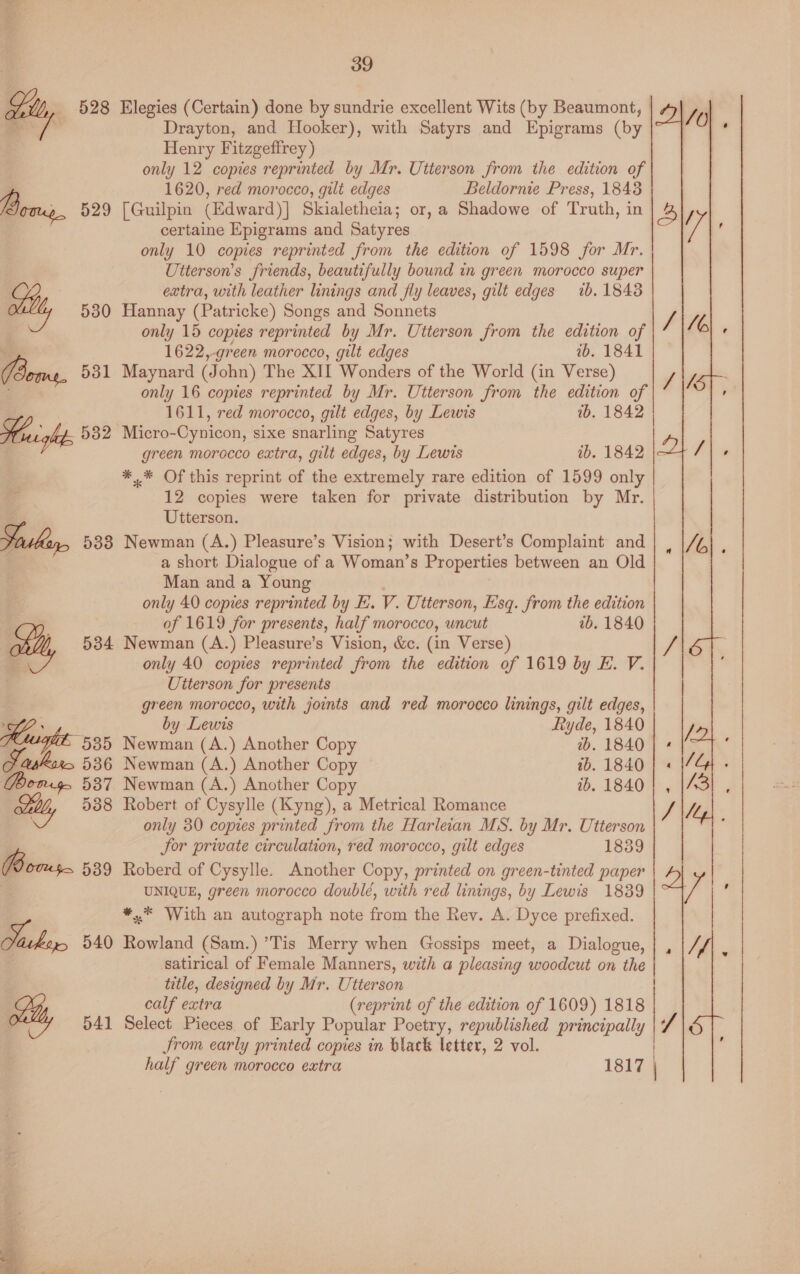 39
Lilly 528 Elegies (Certain) done by sundrie excellent Wits (by Beaumont, 2 10 .
Drayton, and Hooker), with Satyrs and Epigrams (by
Henry Fitzgeffrey)
only 12 copies reprinted by Mr. Utterson from the edition of
1620, red morocco, gilt edges Beldornie Press, 1843
Boone 529 [Guilpin (Edward)] Skialetheia; or, a Shadowe of Truth, in 3 17 .
certaine Epigrams and Satyres
only 10 copies reprinted from the edition of 1598 for Mr.
Utterson's friends, beautifully bound in green morocco super
extra, with leather linings and fly leaves, gilt edges ib. 1843
Lilly 530 Hannay (Patricke) Songs and Sonnets
only 15 copies reprinted by Mr. Utterson from the edition of 1 16 .
1622, green morocco, gilt edges ib. 1841
Boone 531 Maynard (John) The XII Wonders of the World (in Verse)
only 16 copies reprinted by Mr. Utterson from the edition of 1 15 .
1611, red morocco, gilt edges, by Lewis ib. 1842
Knight 532 Micro-Cynicon, sixe snarling Satyres
green morocco extra, gilt edges, by Lewis ib. 1842 2 1 .
*** Of this reprint of the extremely rare edition of 1599 only
12 copies were taken for private distribution by Mr.
Utterson.
533 Newman (A.) Pleasure's Vision; with Desert's Complaint and . 16 .
a short Dialogue of a Woman's Properties between an Old
Man and a Young
only 40 copies reprinted by E. V. Utterson, Esq. from the edition
of 1619 for presents, half morocco, uncut ib. 1840
Lilly 534 Newman (A.) Pleasure's Vision, &c. (in Verse)
only 40 copies reprinted from the edition of 1619 by E. V. 1 5 .
Utterson for presents
green morocco, with joints and red morocco linings, gilt edges,
by Lewis Ryde, 1840
Knight 535 Newman (A.) Another Copy ib. 1840 . 12 .
536 Newman (A.) Another Copy ib. 1840 . 14 .
Boone 537 Newman (A.) Another Copy ib. 1840 . 13 .
Lilly 538 Robert of Cysylle (Kyng), a Metrical Romance
only 30 copies printed from the Harleian MS. by Mr. Utterson 1 14 .
for private circulation, red morocco, gilt edges 1839
Boone 539 Roberd of Cysylle. Another Copy, printed on green-tinted paper
UNIQUE, green morocco doublé, with red linings, by Lewis 1839
*** With an autograph note from the Rev. A. Dyce prefixed.
540 Rowland (Sam.) 'Tis Merry when Gossips meet, a Dialogue, . 11 .
satirical of Female Manners, with a pleasing woodcut on the
title, designed by Mr. Utterson
calf extra (reprint of the edition of 1609) 1818
Lilly 541 Select Pieces of Early Popular Poetry, republished principally 1 5 .
from early printed copies in black letter, 2 vol.
half green morocco extra 1817